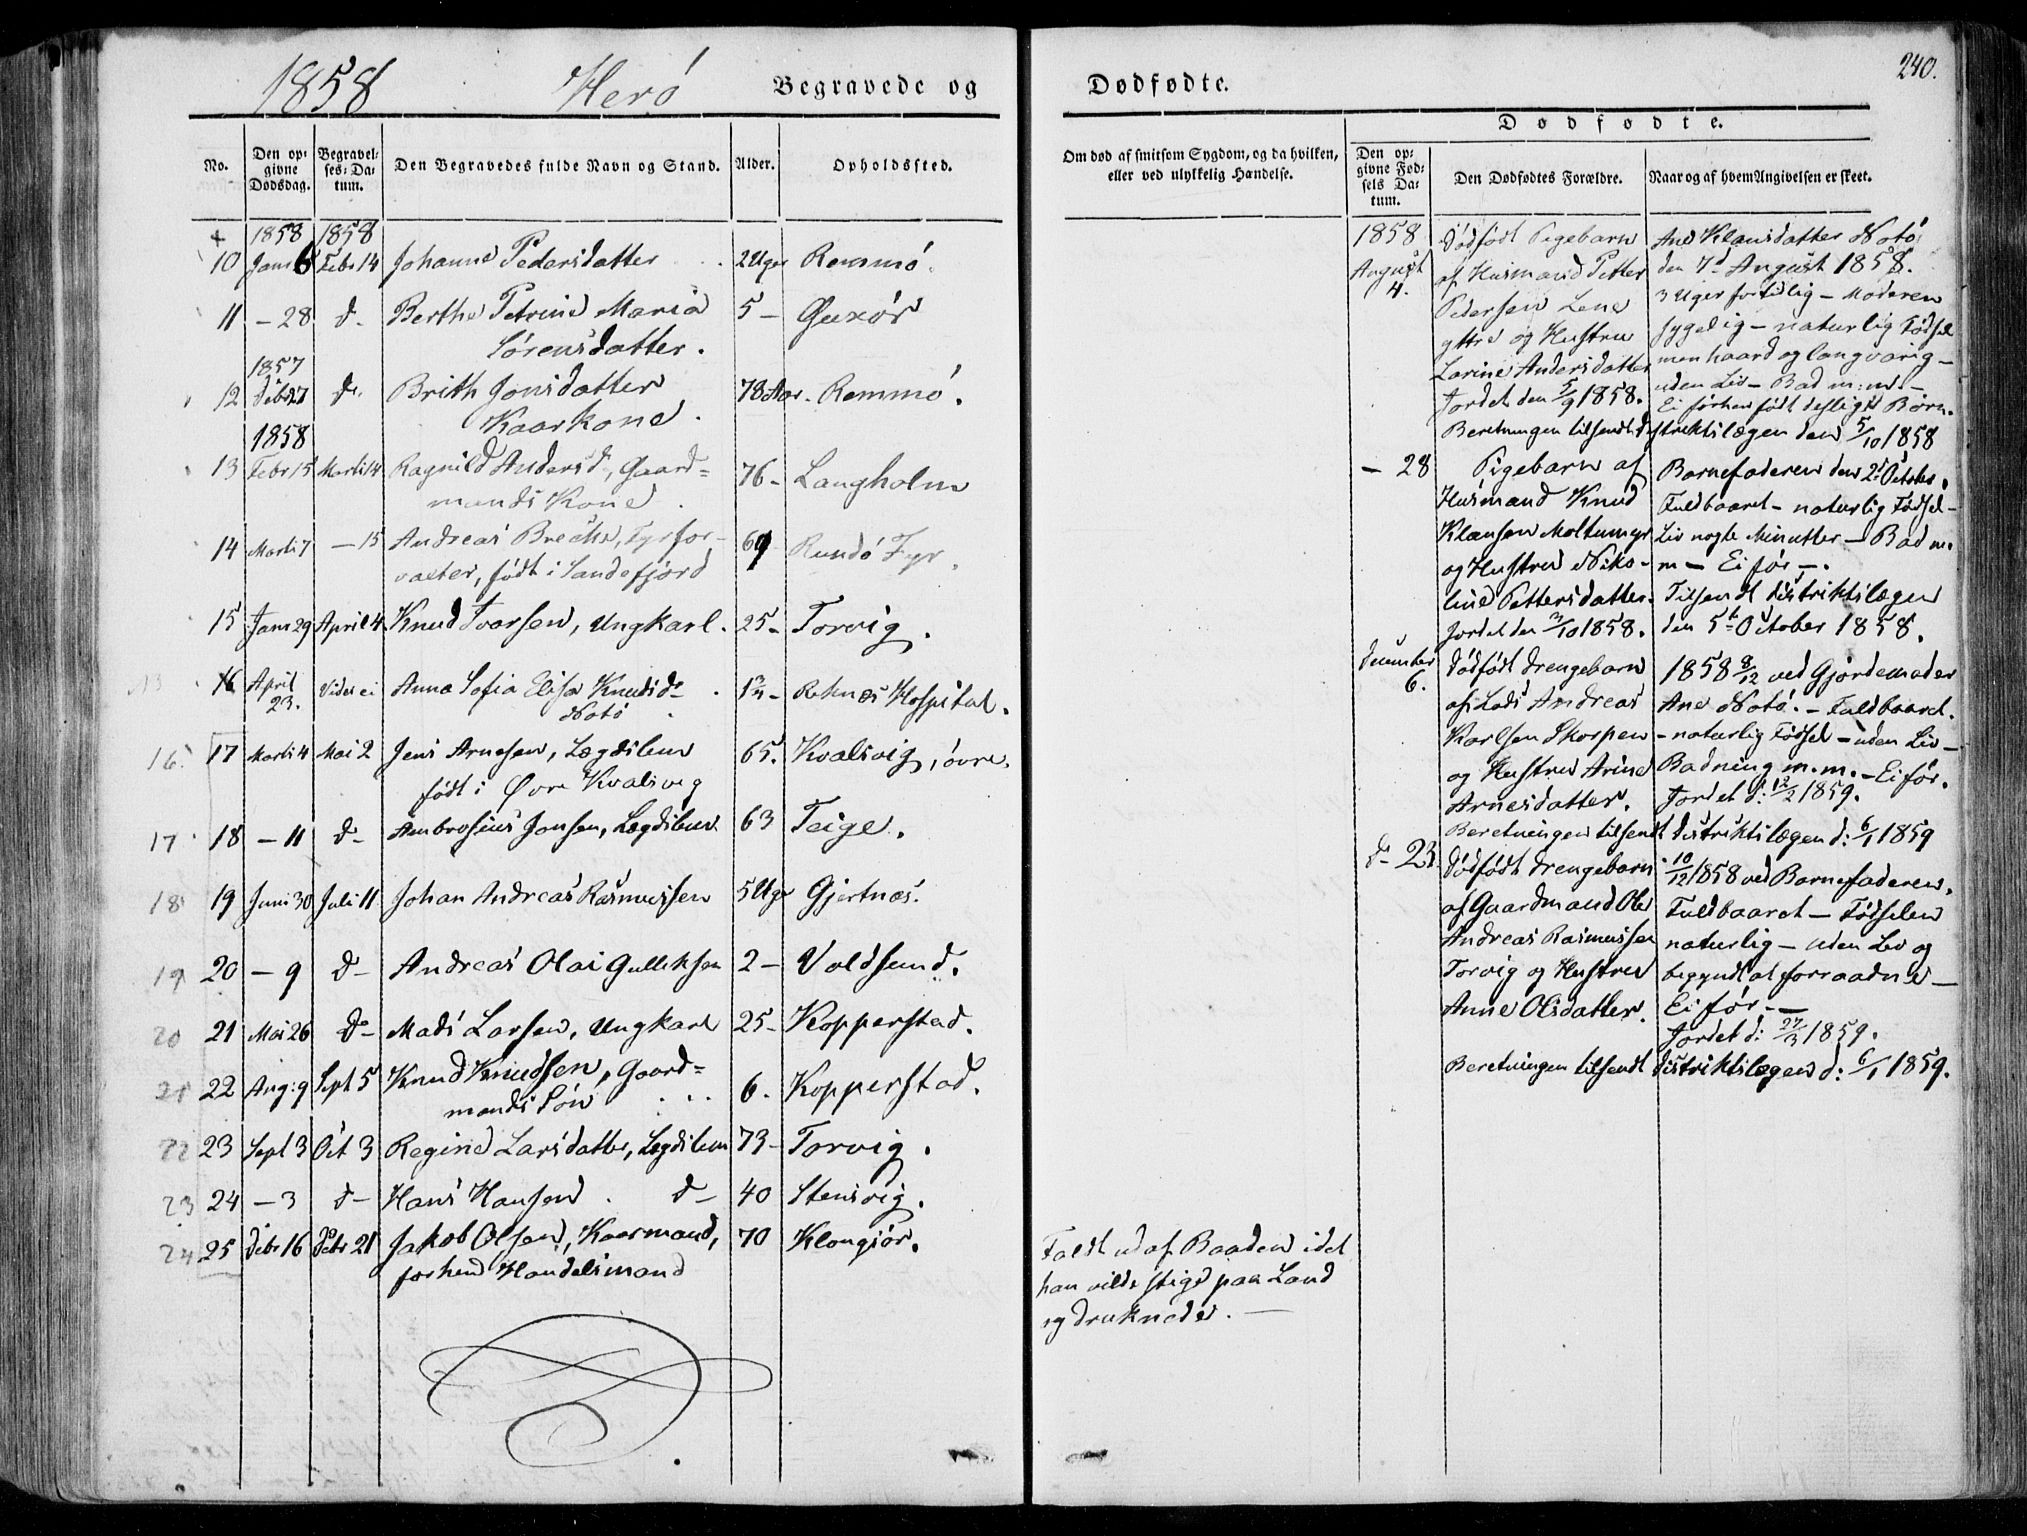 1858 Herö Begravede og Dødfødte. 240.
No. Den opgivne Dødsdag. Begravelses-Datum. Den Begravedes fulde Navn og Stand. Alder. Opholdssted.
Om død af smitsom Sygdom, og da hvilken, eller ved ulykkelig Hændelse.
Dødfødte.
Den opgivne Fødsels Datum. Den Dødfødtes Forældre. Naar og af hvem Angivelsen er skeet.
1858 1858
10 Janr 6 Febr 14 Johanne Pedersdatter 2 Uger Remmö.
11 - 28 d- Berthe Petrine Maria 5 - Quxör
Sörensdatter.
1857
12 Debr 27 d- Brith Jonsdatter 78 Aar. Remmö.
Kaarkone.
1858
13 Febr 15 Marts 14 Ragnild Andersd, Gaard= 76 - Langholm
mands Kone.
14 Marts 7 - 15 Andreas Breche, Fyrfor- 69 Rundö Fyr.
valter, födt i Sandefjord
15 Janr 29 April 4 Knud Ivarsen, Ungkarl. 25 - Torvig.
16 April 23. Vides ei Anna Sofia Elisa Knudsd- Reknæs Hospital.
Notö
16. 17 Marts 4 Mai 2 Jens Arnesen, Lægdslem 65. Kvalsvig, övre.
födt i Øvre Kvalsvig
17 18 - 11 d- Ambrosius Jonsen, Lægdslem 63 Teige.
18 19 Juni 30 Juli 11 Johan Andreas Rasmussen 5 Uger Gjertnæs.
19 20 - 9 d- Andreas Olai Gulliksen 2 - Voldsund.
20 21 Mai 26 d- Mads Larsen, Ungkarl 25 - Kopperstad.
21 22 Aug: 9 Sept 5 Knud Knudsen, Gaard= 6. Kopperstad.
mands Sön
22 23 Sept 3 Oct 3 Regine Larsdatter, Lægdslem 73 - Torvig.
23 24 - 3 d- Hans Hansen d- 40 Stensvig.
24 25 Debr 16 Debr 21 Jakob Olsen, Kaarmand, 70 Klongsör.
forhen Handelsmand
Faldt ud af Baaden idet
han vilde stige paa Land
og druknede. -
1858
August
4.
Dödfödt Pigebarn
af Husmand Petter
Pedersen Lene
yttre og Hustru
Larine Andersdatter
Jordet den 5/9 1858.
Ane Klausdatter Notö
den 7d August 1858.
3 Uger for tidlig - Moderen
sygelig - naturlig Födsel
men haard og langvarig -
uden Liv - Bad m:m. -
Ei förhen födt desligt Börn.
Beretningen tilsendt distriktslægen den 5/10 1858
- 28
Pigebarn af
Husmand Knud
Klausen Moltumyr
og Hustru Niko-
line Pettersdatter.
Jordet den 3/10 1858.
Barnefaderen den 2d October.
Fuldbaaret - naturlig Födsel -
Liv nogle Minutter - Bad m.
m - Ei för -.
Tilsendt distriktslægen
den 5te October 1858.
December
6.
Dödfödt drengebarn
af Lods Andreas
Karlsen Skorpen
og Hustru Arine
Arnesdatter.
1858 8/12 ved Gjordemoder
Ane Notö. - Fuldbaaret.
- naturlig Födsel - uden Liv -
Badning m.m. - Ei för.
Jordet d: 12/2 1859.
Beretningen tilsendt distriktslægen d: 6/1 1859
d- 23.
Dödfödt drengebarn
af Gaardmand Ole
Andreas Rasmussen
Torvig og Hustru
Anne Olsdatter.
1858 ved Barnefaderen.
Fuldbaaret - Födselen
naturlig - uden Liv og
begyndt at forraadne -
Ei för. -
Jordet d: 27/3 1859.
Beretningen tilsendt distriktslægen d: 6/1 1859.